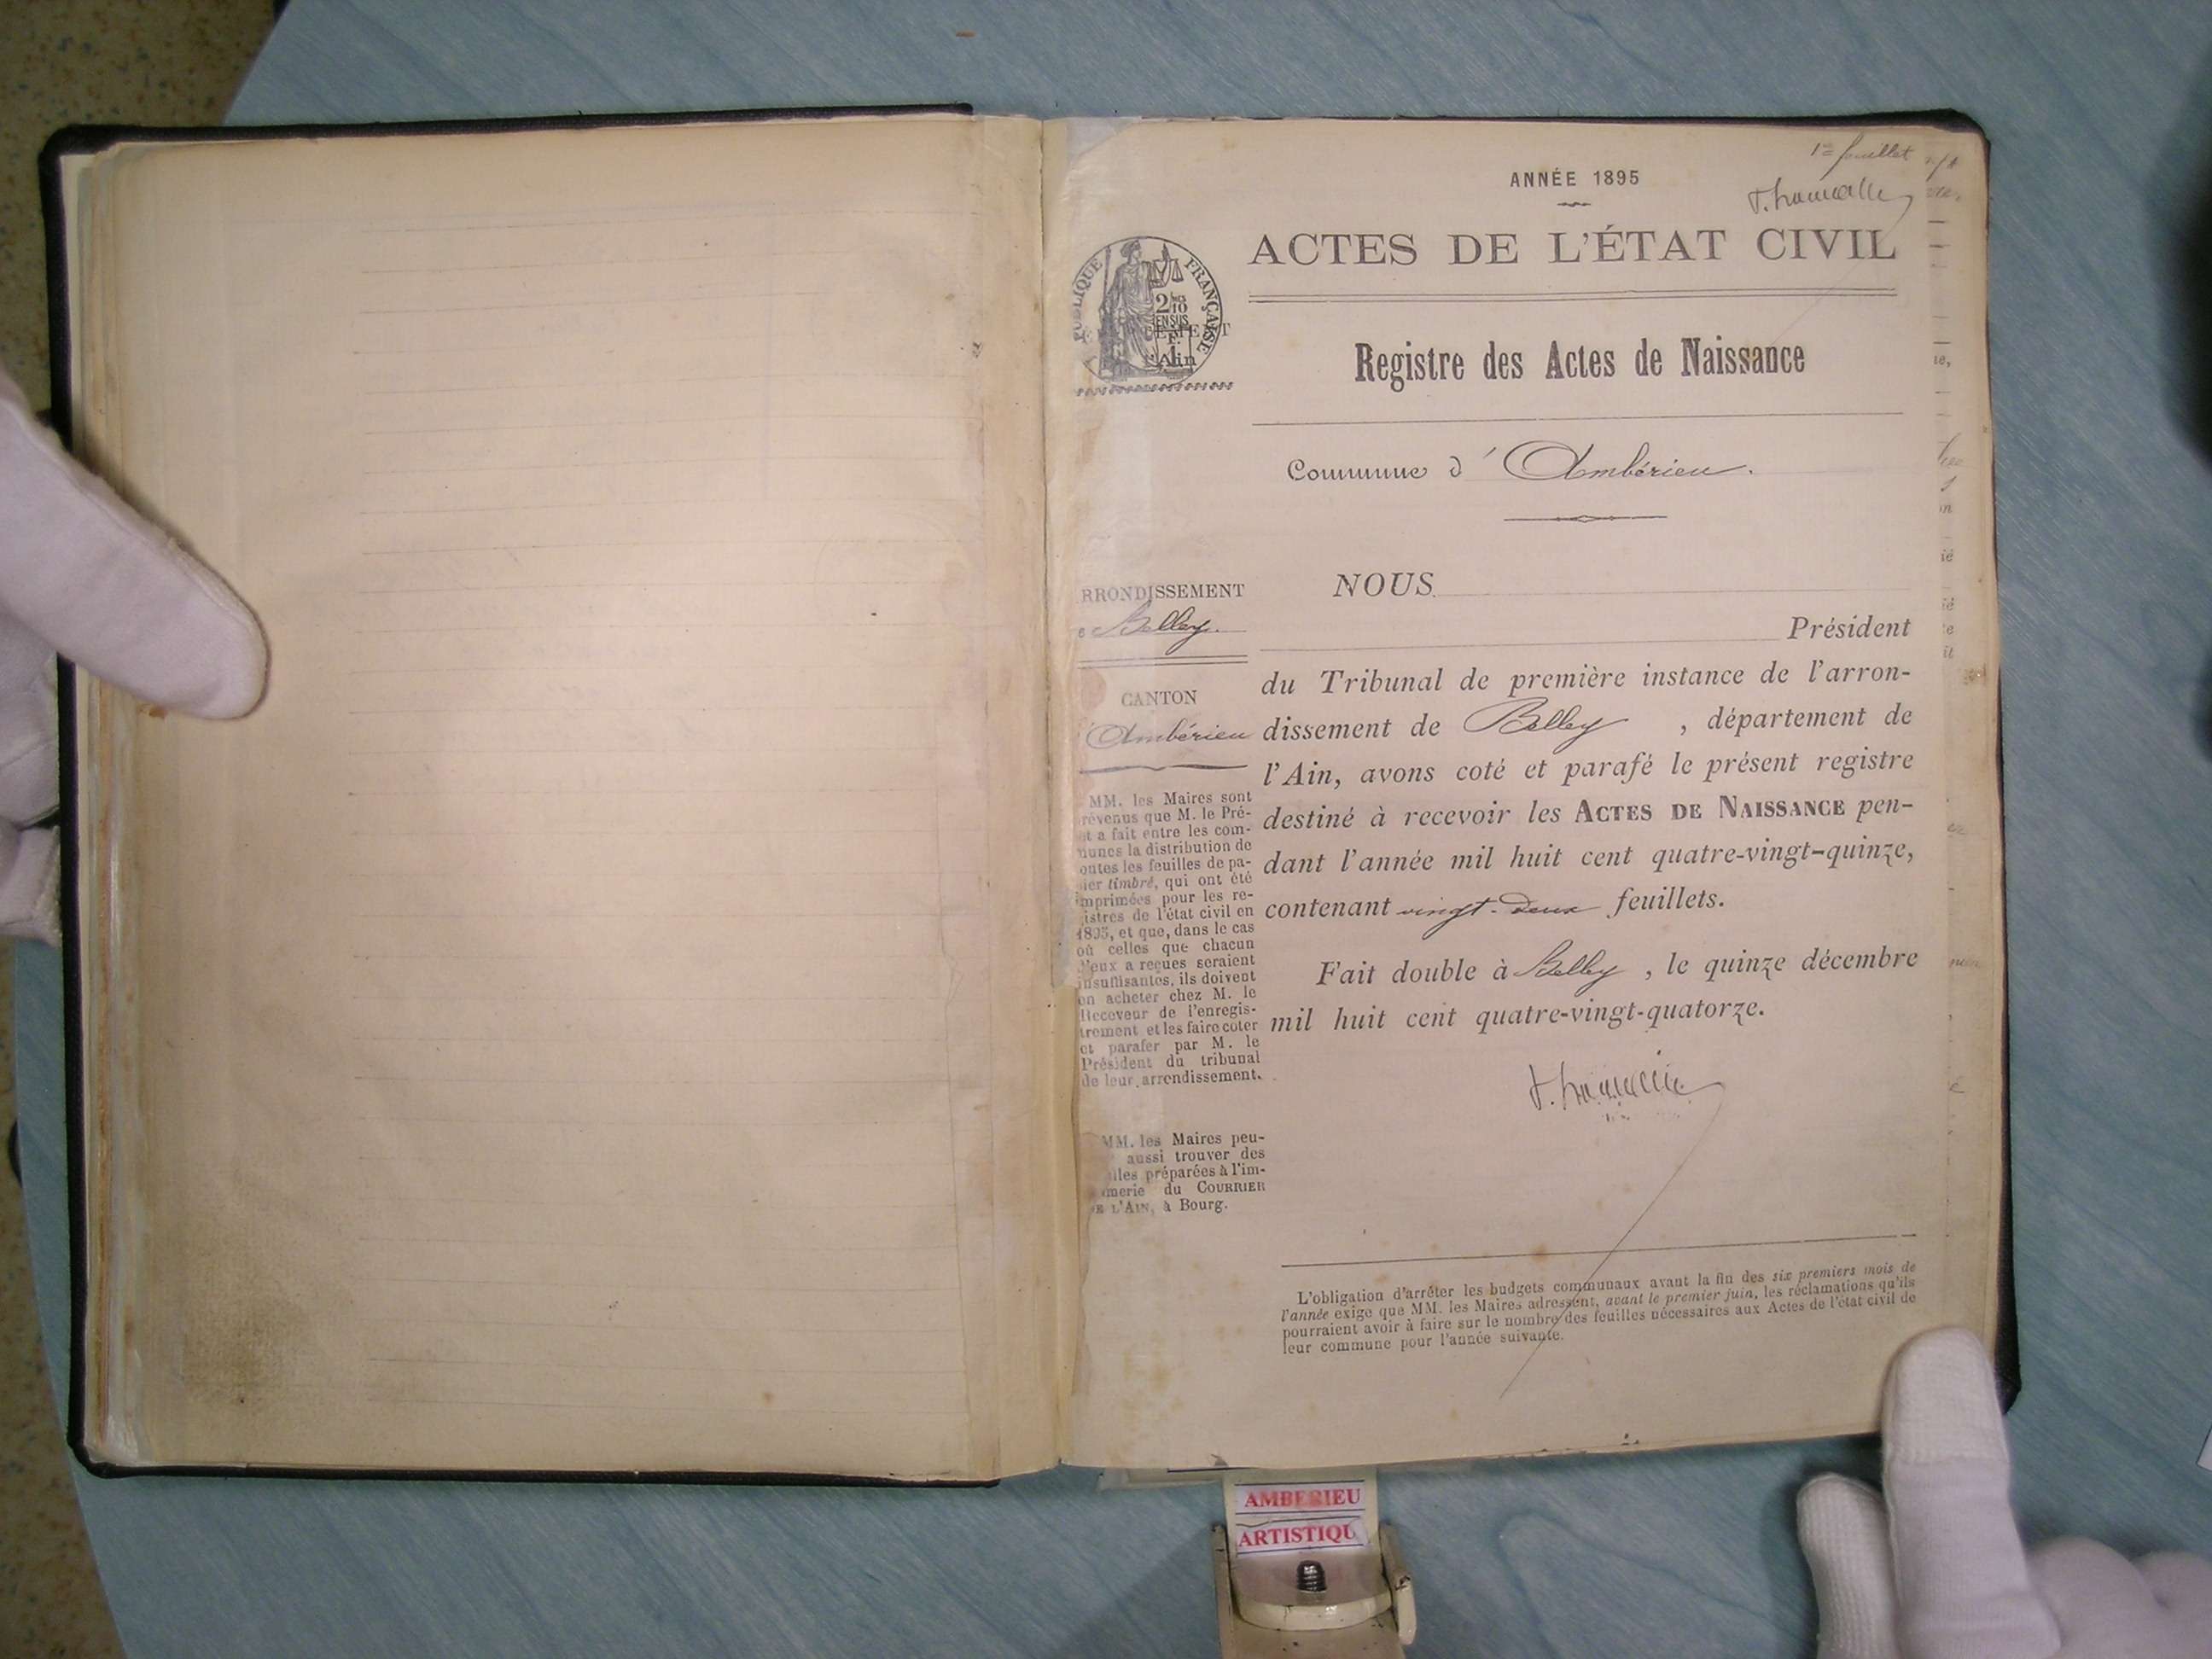 1er feuillet
ANNÉE 1895
ACTES DE L'ÉTAT CIVIL
PUBLIQUE FRANÇAISE
2/10
EN SUS
l'Ain
Registre des Actes de Naissance
Commune d'Ambérieu.
RRONDISSEMENT
e Belley.
CANTON
d'Ambérieu
NOUS
Président
du Tribunal de première instance de l'arron-
dissement de Belley, département de
l'Ain, avons coté et parafé le présent registre
destiné à recevoir les ACTES DE NAISSANCE pen-
dant l'année mil huit cent quatre-vingt-quinze,
contenant vingt-deux feuillets.
Fait double à Belley, le quinze décembre
mil huit cent quatre-vingt-quatorze.
MM. les Maires sont
révenus que M. le Pré-
et a fait entre les com-
munes la distribution de
outes les feuilles de pa-
ier timbré, qui ont été
imprimées pour les re-
istres de l'état civil en
1895, et que, dans le cas
où celles que chacun
d'eux a reçues seraient
insuffisantes, ils doivent
en acheter chez M. le
Receveur de l'enregis-
trement et les faire coter
et parafer par M. le
Président du tribunal
de leur arrondissement.
MM. les Maires peu-
aussi trouver des
illes préparées à l'im-
imerie du COURRIER
DE L'AIN, à Bourg.
L'obligation d'arrêter les budgets communaux avant la fin des six premiers mois de
l'année exige que MM. les Maires adressent, avant le premier juin, les réclamations qu'ils
pourraient avoir à faire sur le nombre des feuilles nécessaires aux Actes de l'état civil de
leur commune pour l'année suivante.
AMBERIEU
ARTISTIQU